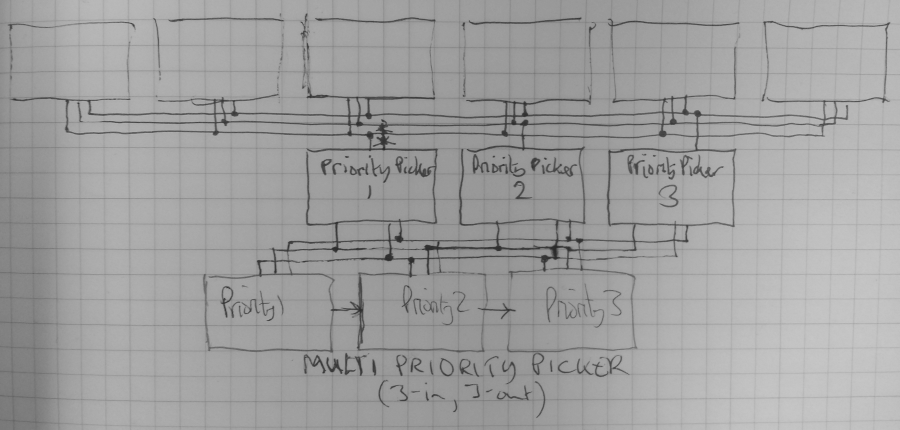 Priority Picker
1
Priority Picker
2
Priority Picker
3
Priority 1
Priority 2
Priority 3
MULTI PRIORITY PICKER
(3-in, 3-out)